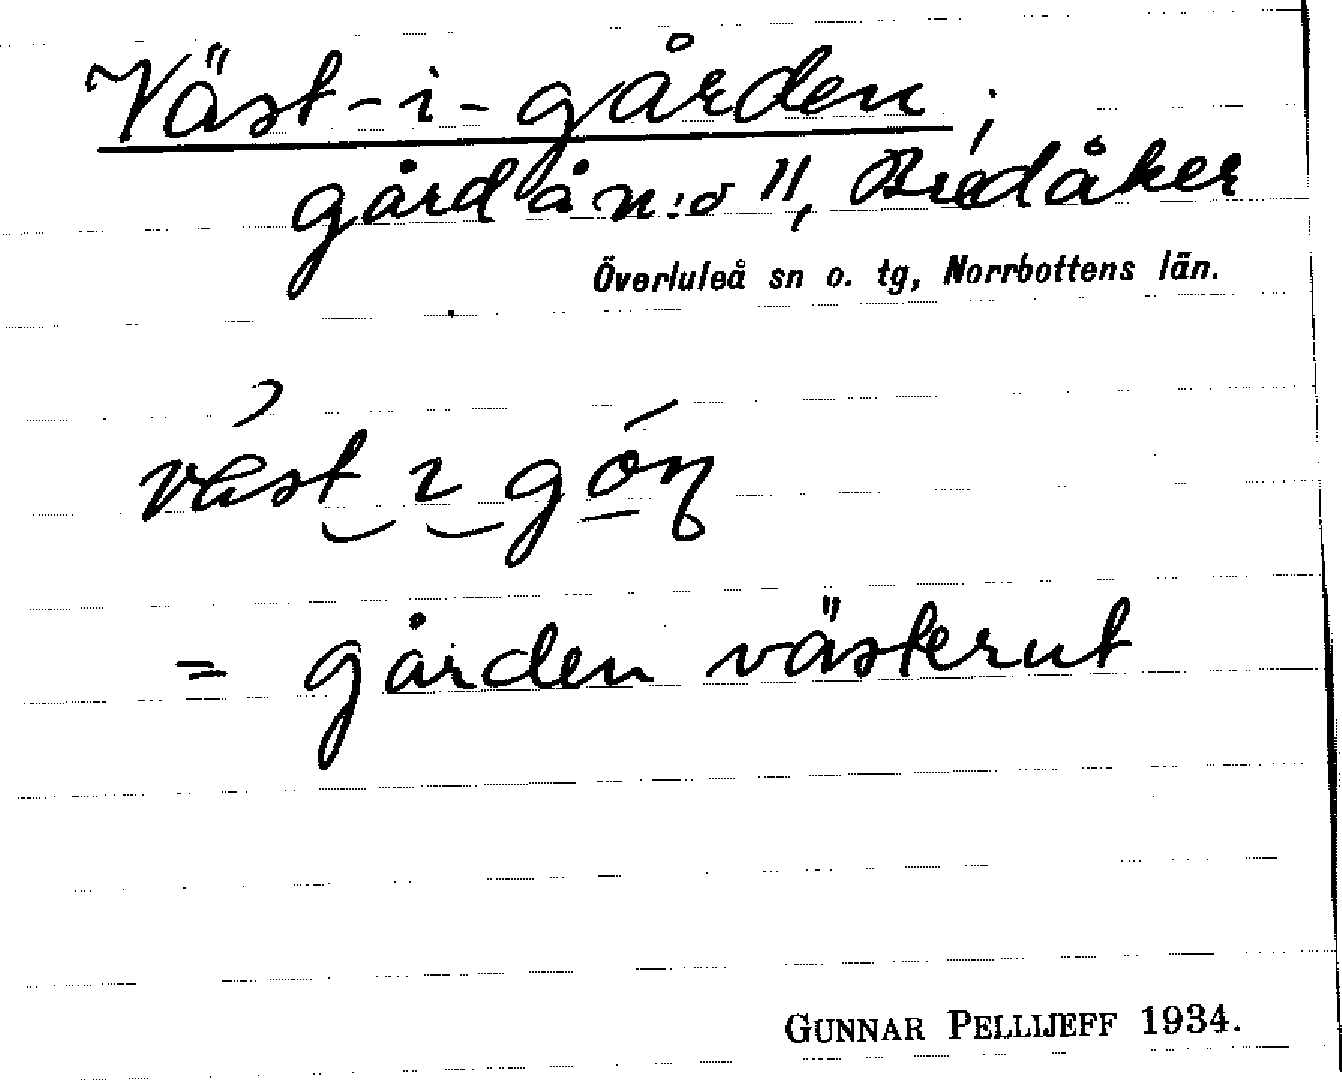 Väst-i-gården;
gård å n:o 11, Bredåker
Överluleå sn o. tg, Norrbottens län.
= gården västerut
GUNNAR PELLIJEFF 1934.